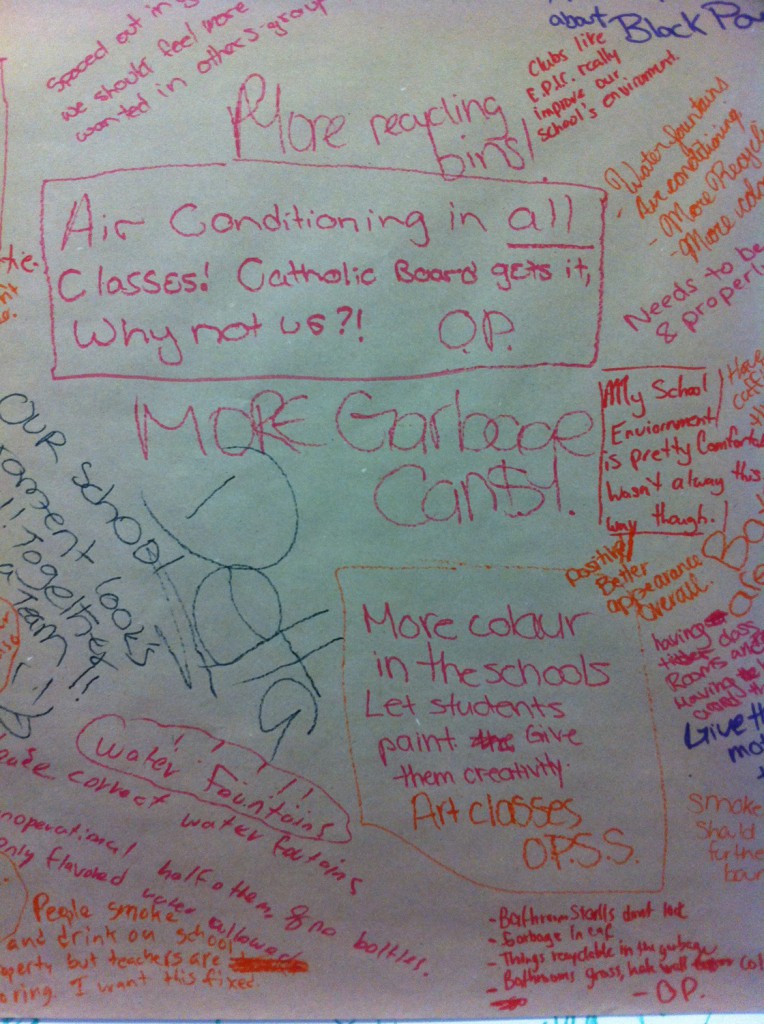 Spaced out in
we should feel more
wanted in others group
about Black
Clubs like
E.P.I.C. really
improve our
school's environment.
More recycling
bins!
Water fountains
- Air conditioning
- More Recycl
- More colo
Air Conditioning in all
Classes! Catholic Board gets it,
Why not us?!   O.P.
Needs to be
& properly
MORE Garbage
Cans!
My School
Enviornment
is pretty Comfortab
Wasn't alway this
way though.
OUR SCHOOL
ronment looks
!! Together!!
a Team!!
positive
Better
appearance
overall.
More colour
in the schools
Let students
paint the Give
them creativity.
Art classes
O.P.S.S.
having
class
Rooms and
Having
Give th
mo
Water Fountains
correct water fountains
noperational half of them, & no bottles.
only flavored water allowed
smoke
Should
furthe
boun
People smoke
and drink on school
operty but teachers are
oring. I want this fixed.
- Bathroom Stalls dont lock
- Garbage In caf
- Things recyclable in the garbage
- Bathrooms gross, hole wall
- O.P.